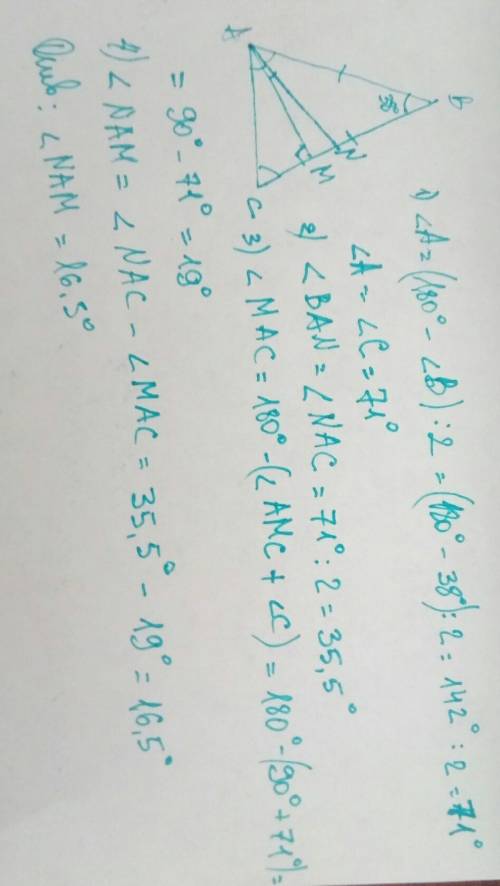 B
38°
A
N
M
C
1) ∠A = (180° - ∠B) : 2 = (180° - 38°) : 2 = 142° : 2 = 71°
∠A = ∠C = 71°
2) ∠BAN = ∠NAC = 71° : 2 = 35,5°
3) ∠MAC = 180° - (∠AMC + ∠C) = 180° - (90° + 71°) =
= 90° - 71° = 19°
4) ∠NAM = ∠NAC - ∠MAC = 35,5° - 19° = 16,5°
Ответ: ∠NAM = 16,5°